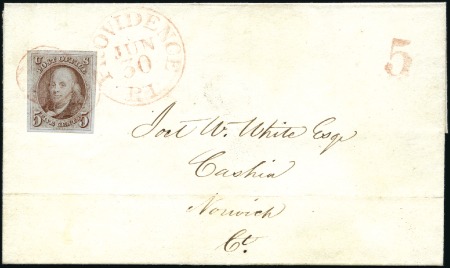 U S
POST OFFICE
5 FIVE CENTS 5
PROVIDENCE
JUN
30
R.I.
5
Joel W. White Esqr
Cashia
Norwich
Ct.